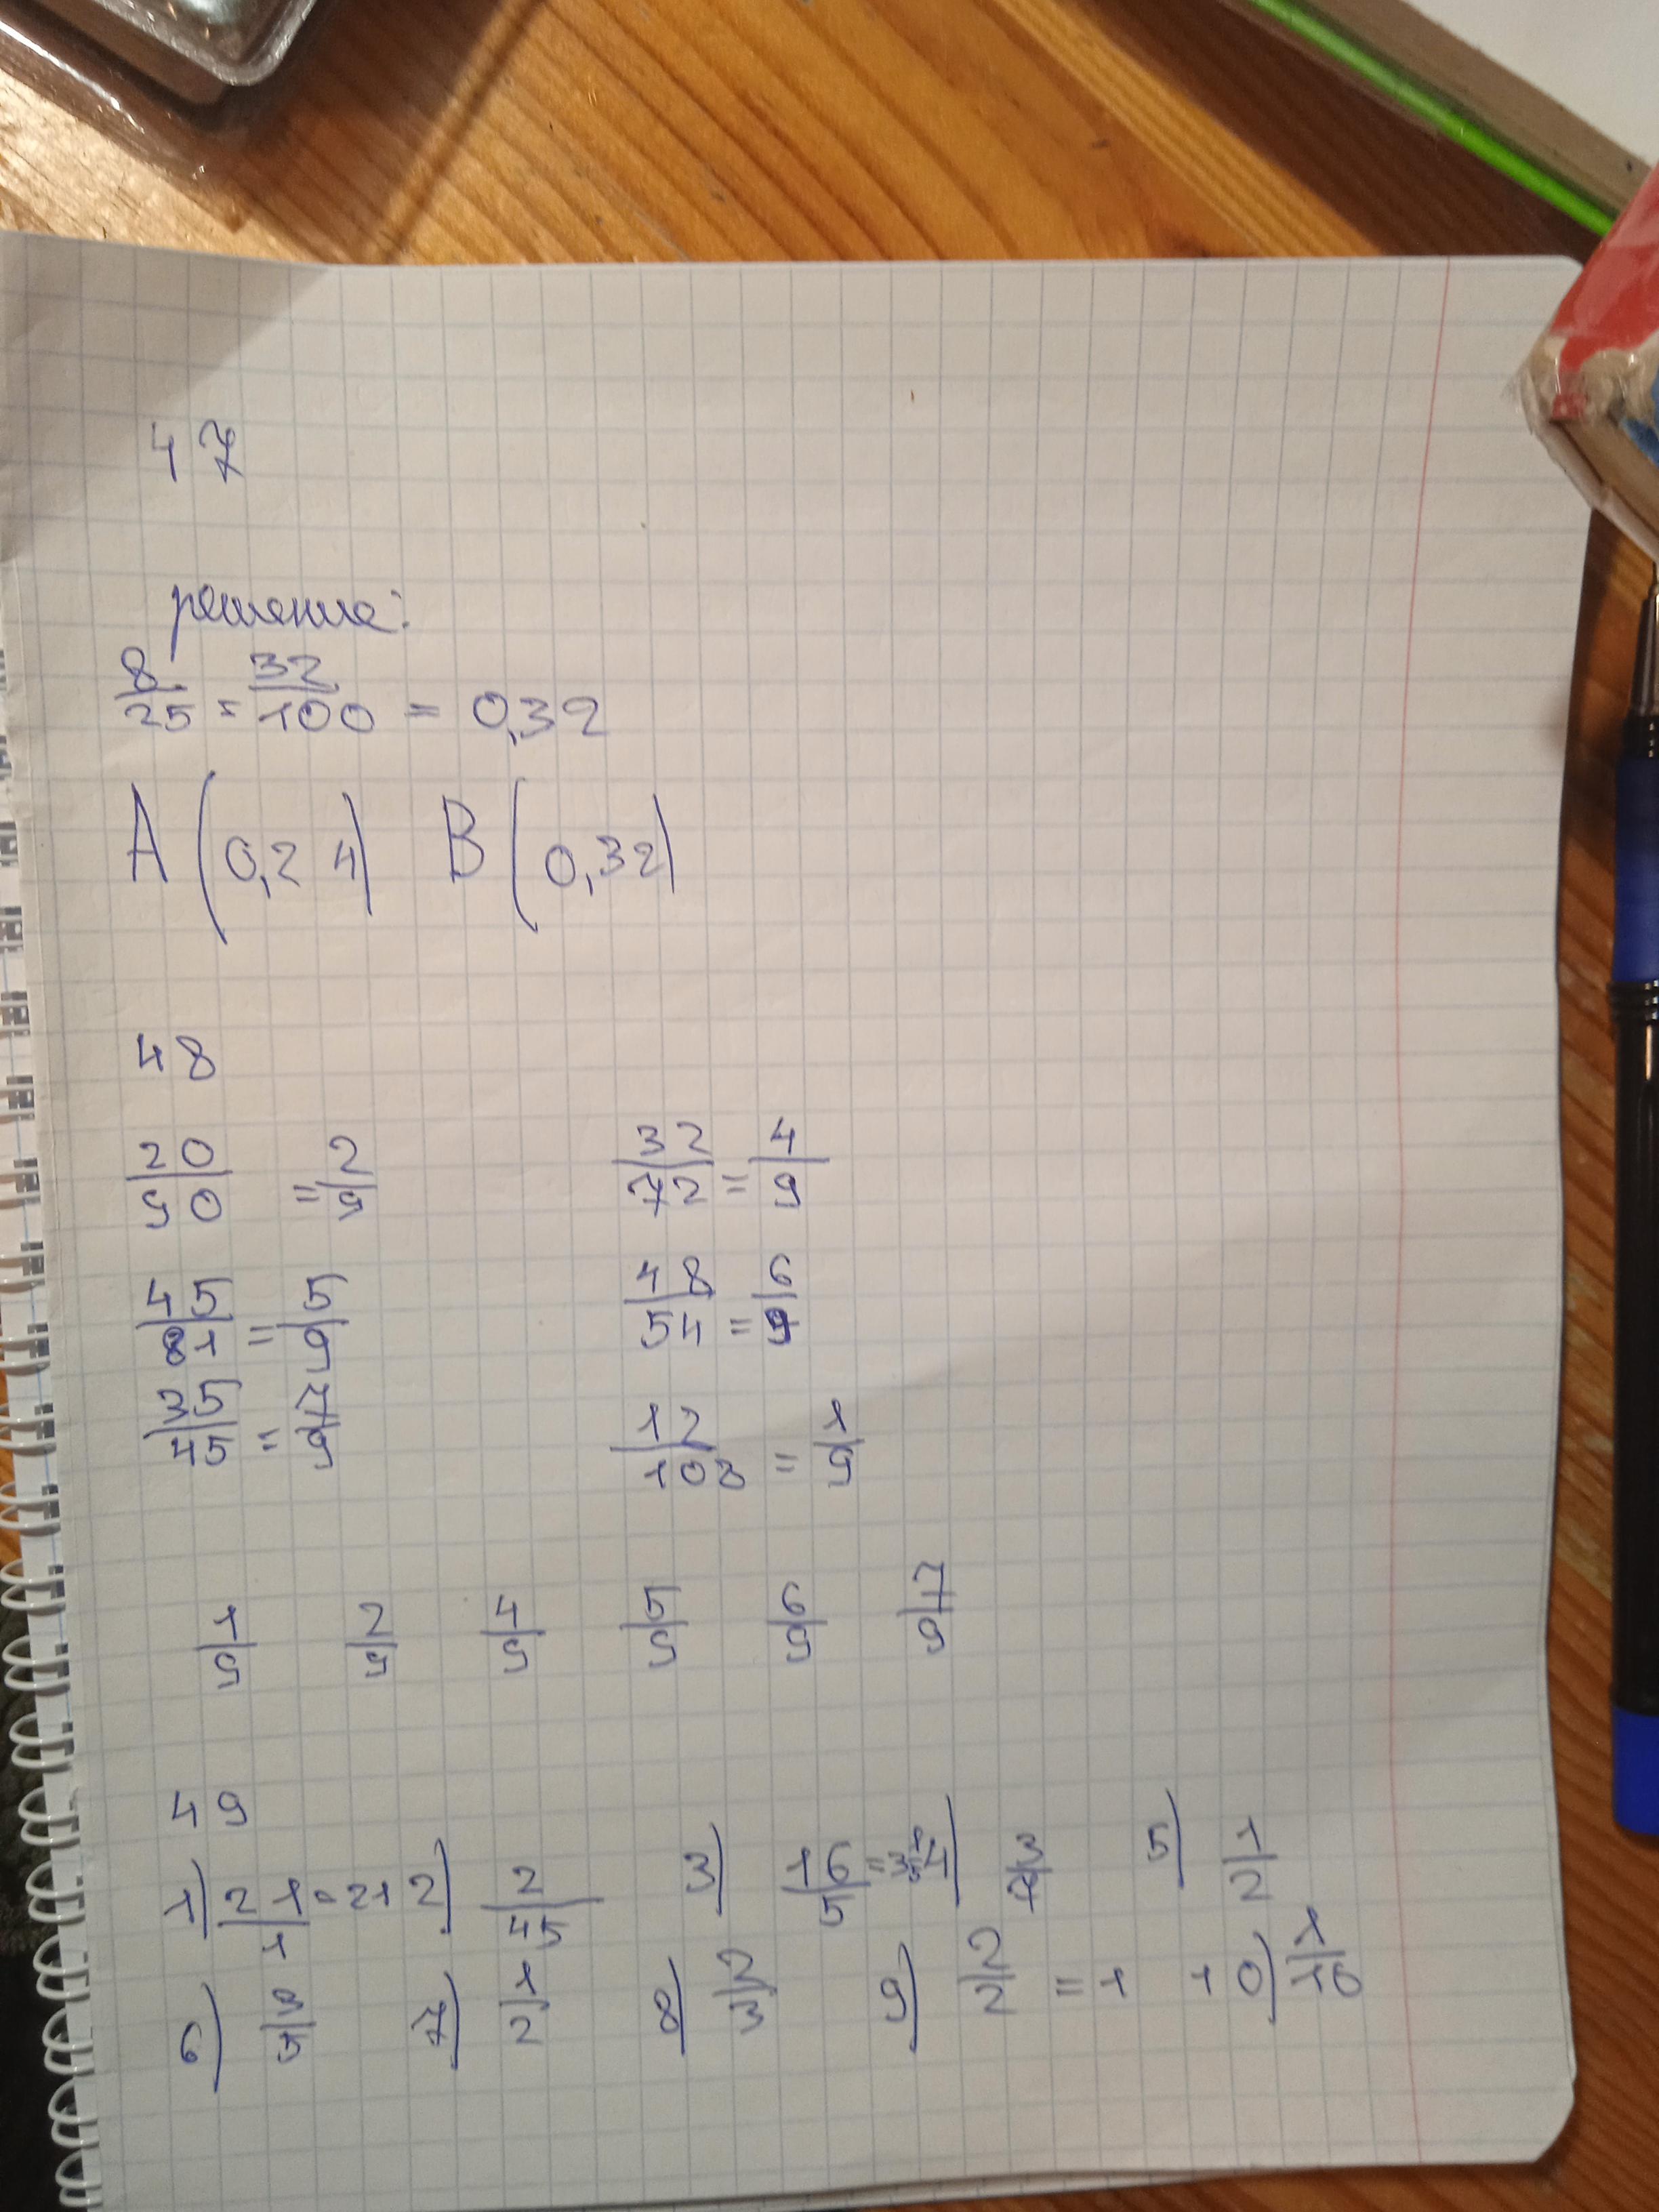 47
решение:
8/25 = 32/100 = 0,32
A (0,24) B (0,32)
48
20/90 = 2/9 32/72 = 4/9
45/81 = 5/9 48/54 = 6/9
35/45 = 7/9 12/108 = 1/9
1/9 2/9 4/9 5/9 6/9 7/9
49
1) 21/1 = 21 2) 2/45 3) 16/5 = 3 1/5 4) 3/7 5) 1/2
6) 7) 1/2 8) 2/3 9) 2/2 = 1 10) 1/10